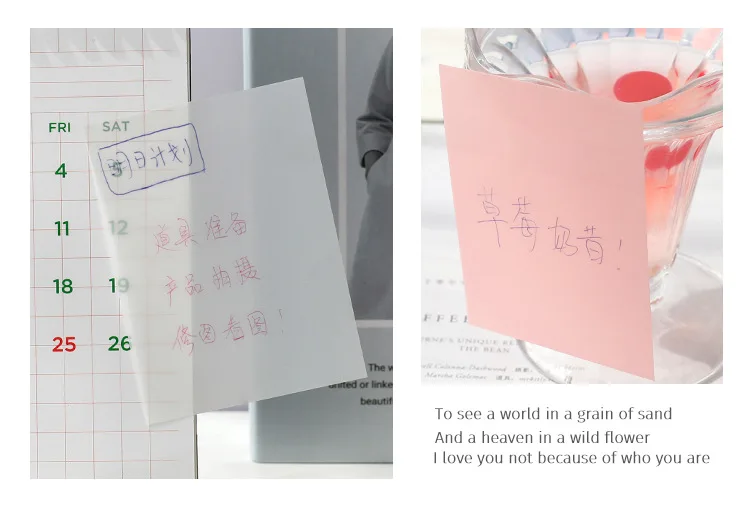 FRI SAT
4
11 12
18 19
25 26
明日计划
道具准备
产品拍摄
修图看图！
The w
united or linke
beautif
草莓奶昔！
FFEE
RNE'S UNIQUE RE
THE BEAN
To see a world in a grain of sand
And a heaven in a wild flower
I love you not because of who you are